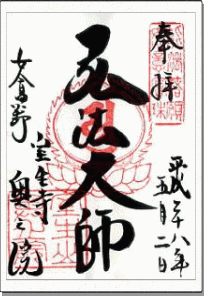 奉拝
平成十八年
五月二日
弘法大師
女人高野
室生寺
奥之院